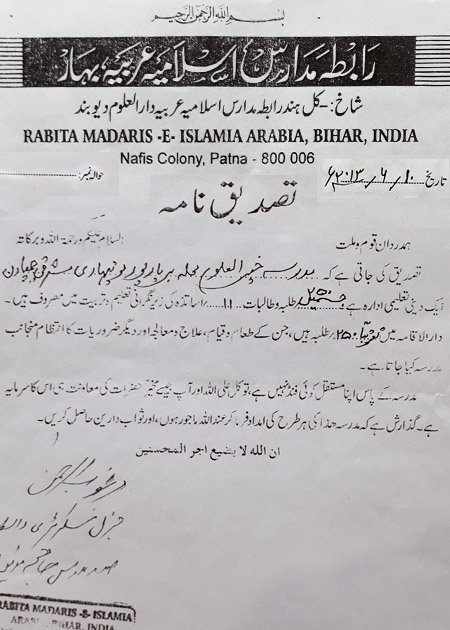 بسم اللہ الرحمن الرحیم
رابطہ مدارس اسلامیہ عربیہ، بہار
شاخ:- کل ہند رابطہ مدارس اسلامیہ عربیہ دارالعلوم دیوبند
RABITA MADARIS -E- ISLAMIA ARABIA, BIHAR, INDIA
Nafis Colony, Patna - 800 006
حوالہ نمبر: تاریخ ۱۰/۶/۲۰۱۳ء
تصدیق نامہ
ہمدردان قوم وملت السلام علیکم ورحمۃ اللہ وبرکاتہ
تصدیق کی جاتی ہے کہ مدرسہ العلوم محلہ
ایک دینی تعلیمی ادارہ ہے ۲۵۰ طلبہ وطالبات ۱۱ اساتذہ کی زیر نگرانی تعلیم وتربیت میں مصروف ہیں۔
دارالاقامہ میں تقریباً ۲۵۰ طلبہ ہیں، جن کے طعام وقیام، علاج ومعالجہ اور دیگر ضروریات کا انتظام منجانب
مدرسہ کیا جاتا ہے۔
مدرسہ کے پاس اپنا مستقل کوئی فنڈ نہیں ہے، توکل علی اللہ اور آپ جیسے مخیر حضرات کی معاونت ہی اس کا سرمایہ
ہے۔ گذارش ہے کہ مدرسہ ھذا کی ہر طرح کی امداد فرما کر عنداللہ ماجور ہوں، اور ثواب دارین حاصل کریں۔
ان اللہ لا یضیع اجر المحسنین
جنرل سکریٹری
صدر مدرس
RABITA MADARIS -E- ISLAMIA
ARABIA, BIHAR, INDIA